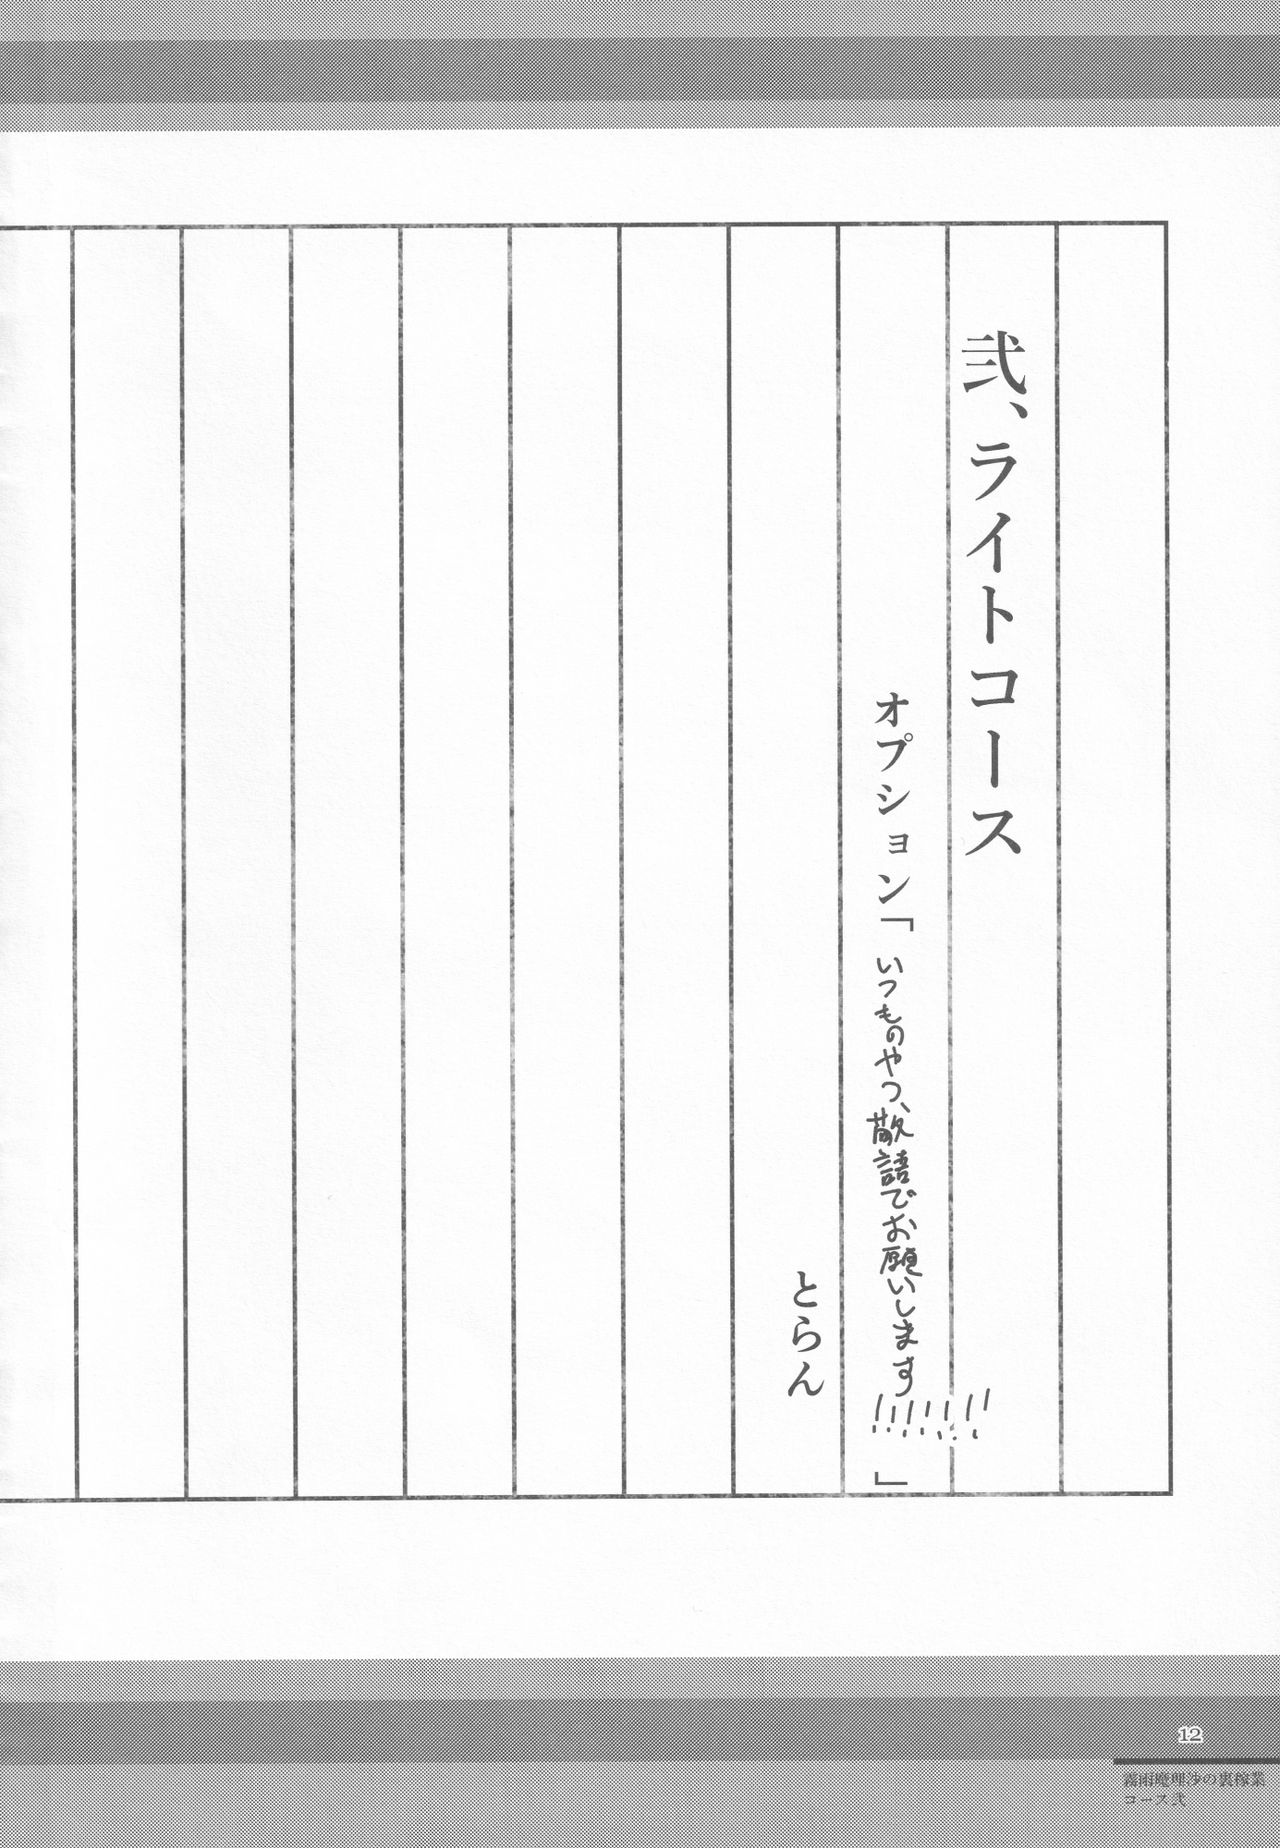 弐、ライトコース
オプション「いつものやつ、敬語でお願いします!!!!!!!」
とらん
12
霧雨魔理沙の裏稼業
コース弐